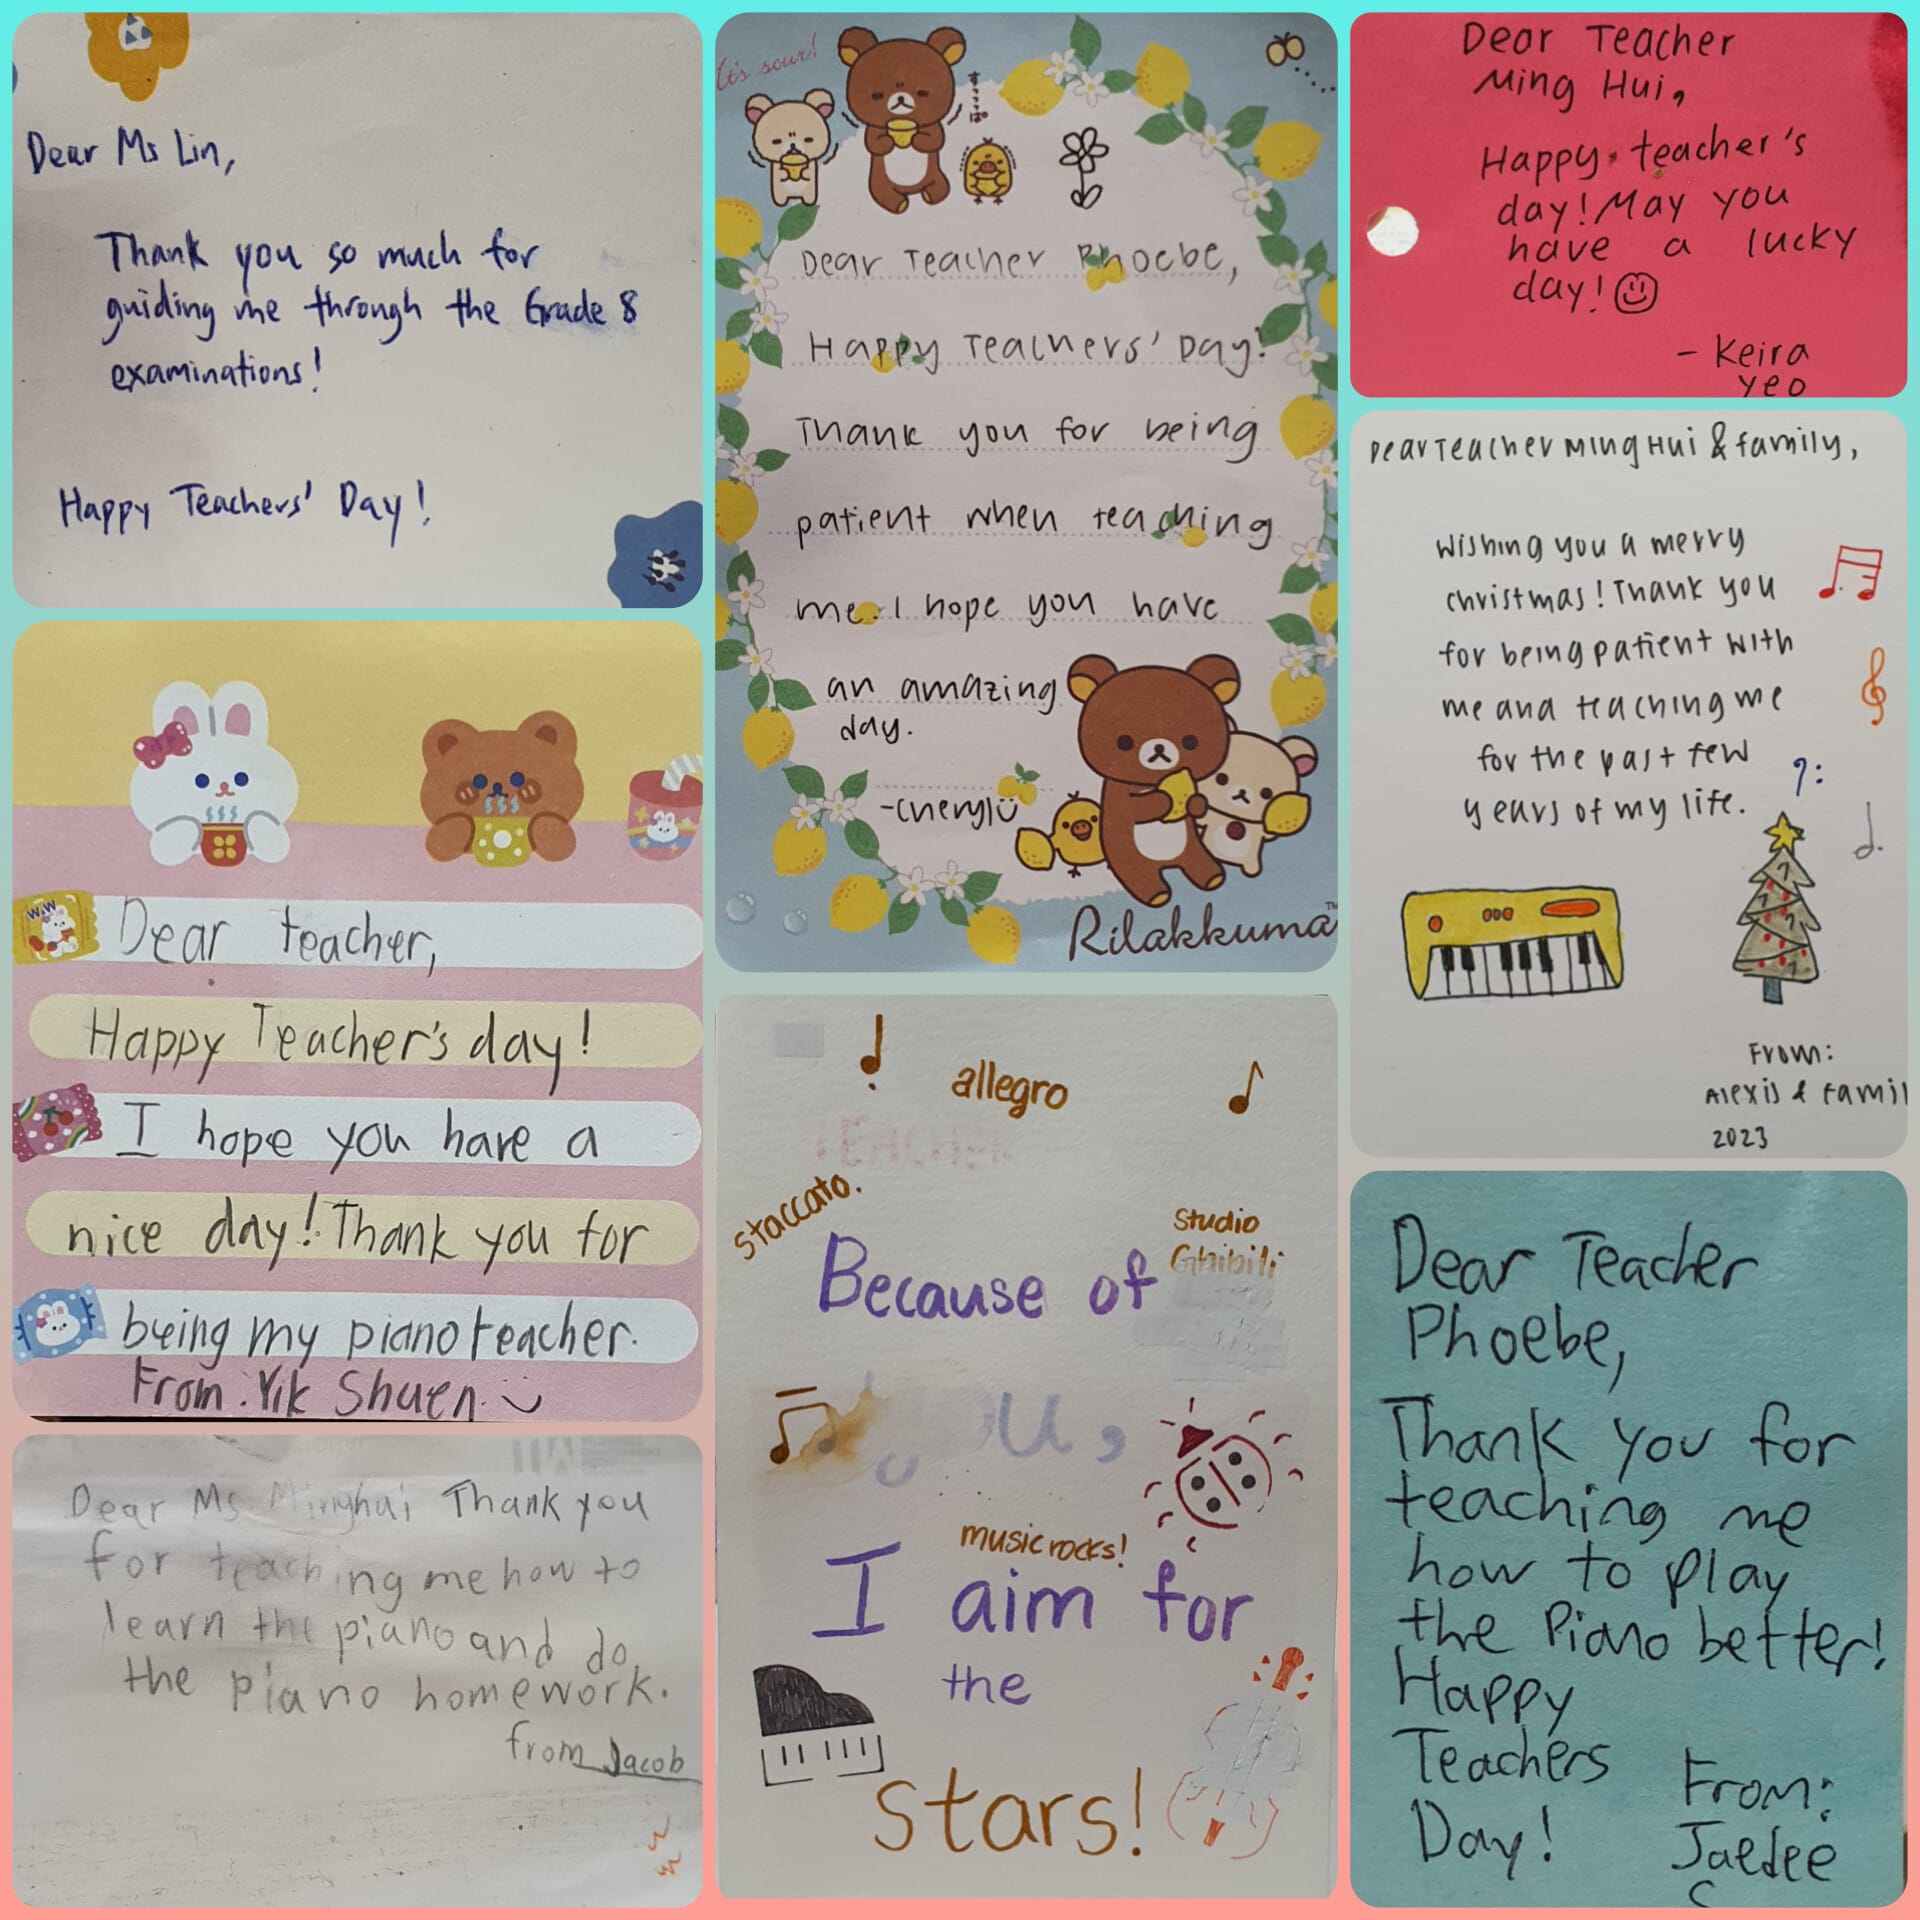 Dear Ms Lin,
Thank you so much for
guiding me through the Grade 8
examinations!
Happy Teachers' Day!
W.W
Dear teacher,
Happy Teacher's day!
I hope you have a
nice day! Thank you for
being my piano teacher.
From: Yik Shuen.
Dear Ms Minghui Thank you
for teaching me how to
learn the piano and do
the piano homework.
from Jacob
It's sour!
すっっっぱ
Dear Teacher Phoebe,
Happy Teachers' Day!
Thank you for being
patient when teaching
me. I hope you have
an amazing
day.
-Cheryl
Rilakkuma™
allegro
TEACHER
staccato.
Studio
Ghibili
Because of
u,
music rocks!
I aim for
the
Stars!
Dear Teacher
Ming Hui,
Happy teacher's
day! May you
have a lucky
day!
- Keira
Yeo
Dear Teacher Ming Hui & family,
Wishing you a merry
christmas! Thank you
for being patient with
me and teaching me
for the past few
years of my life.
From:
Alexis & Famil
2023
Dear Teacher
Phoebe,
Thank you for
teaching me
how to play
the Piano better!
Happy
Teachers
Day!
From:
Jaedee